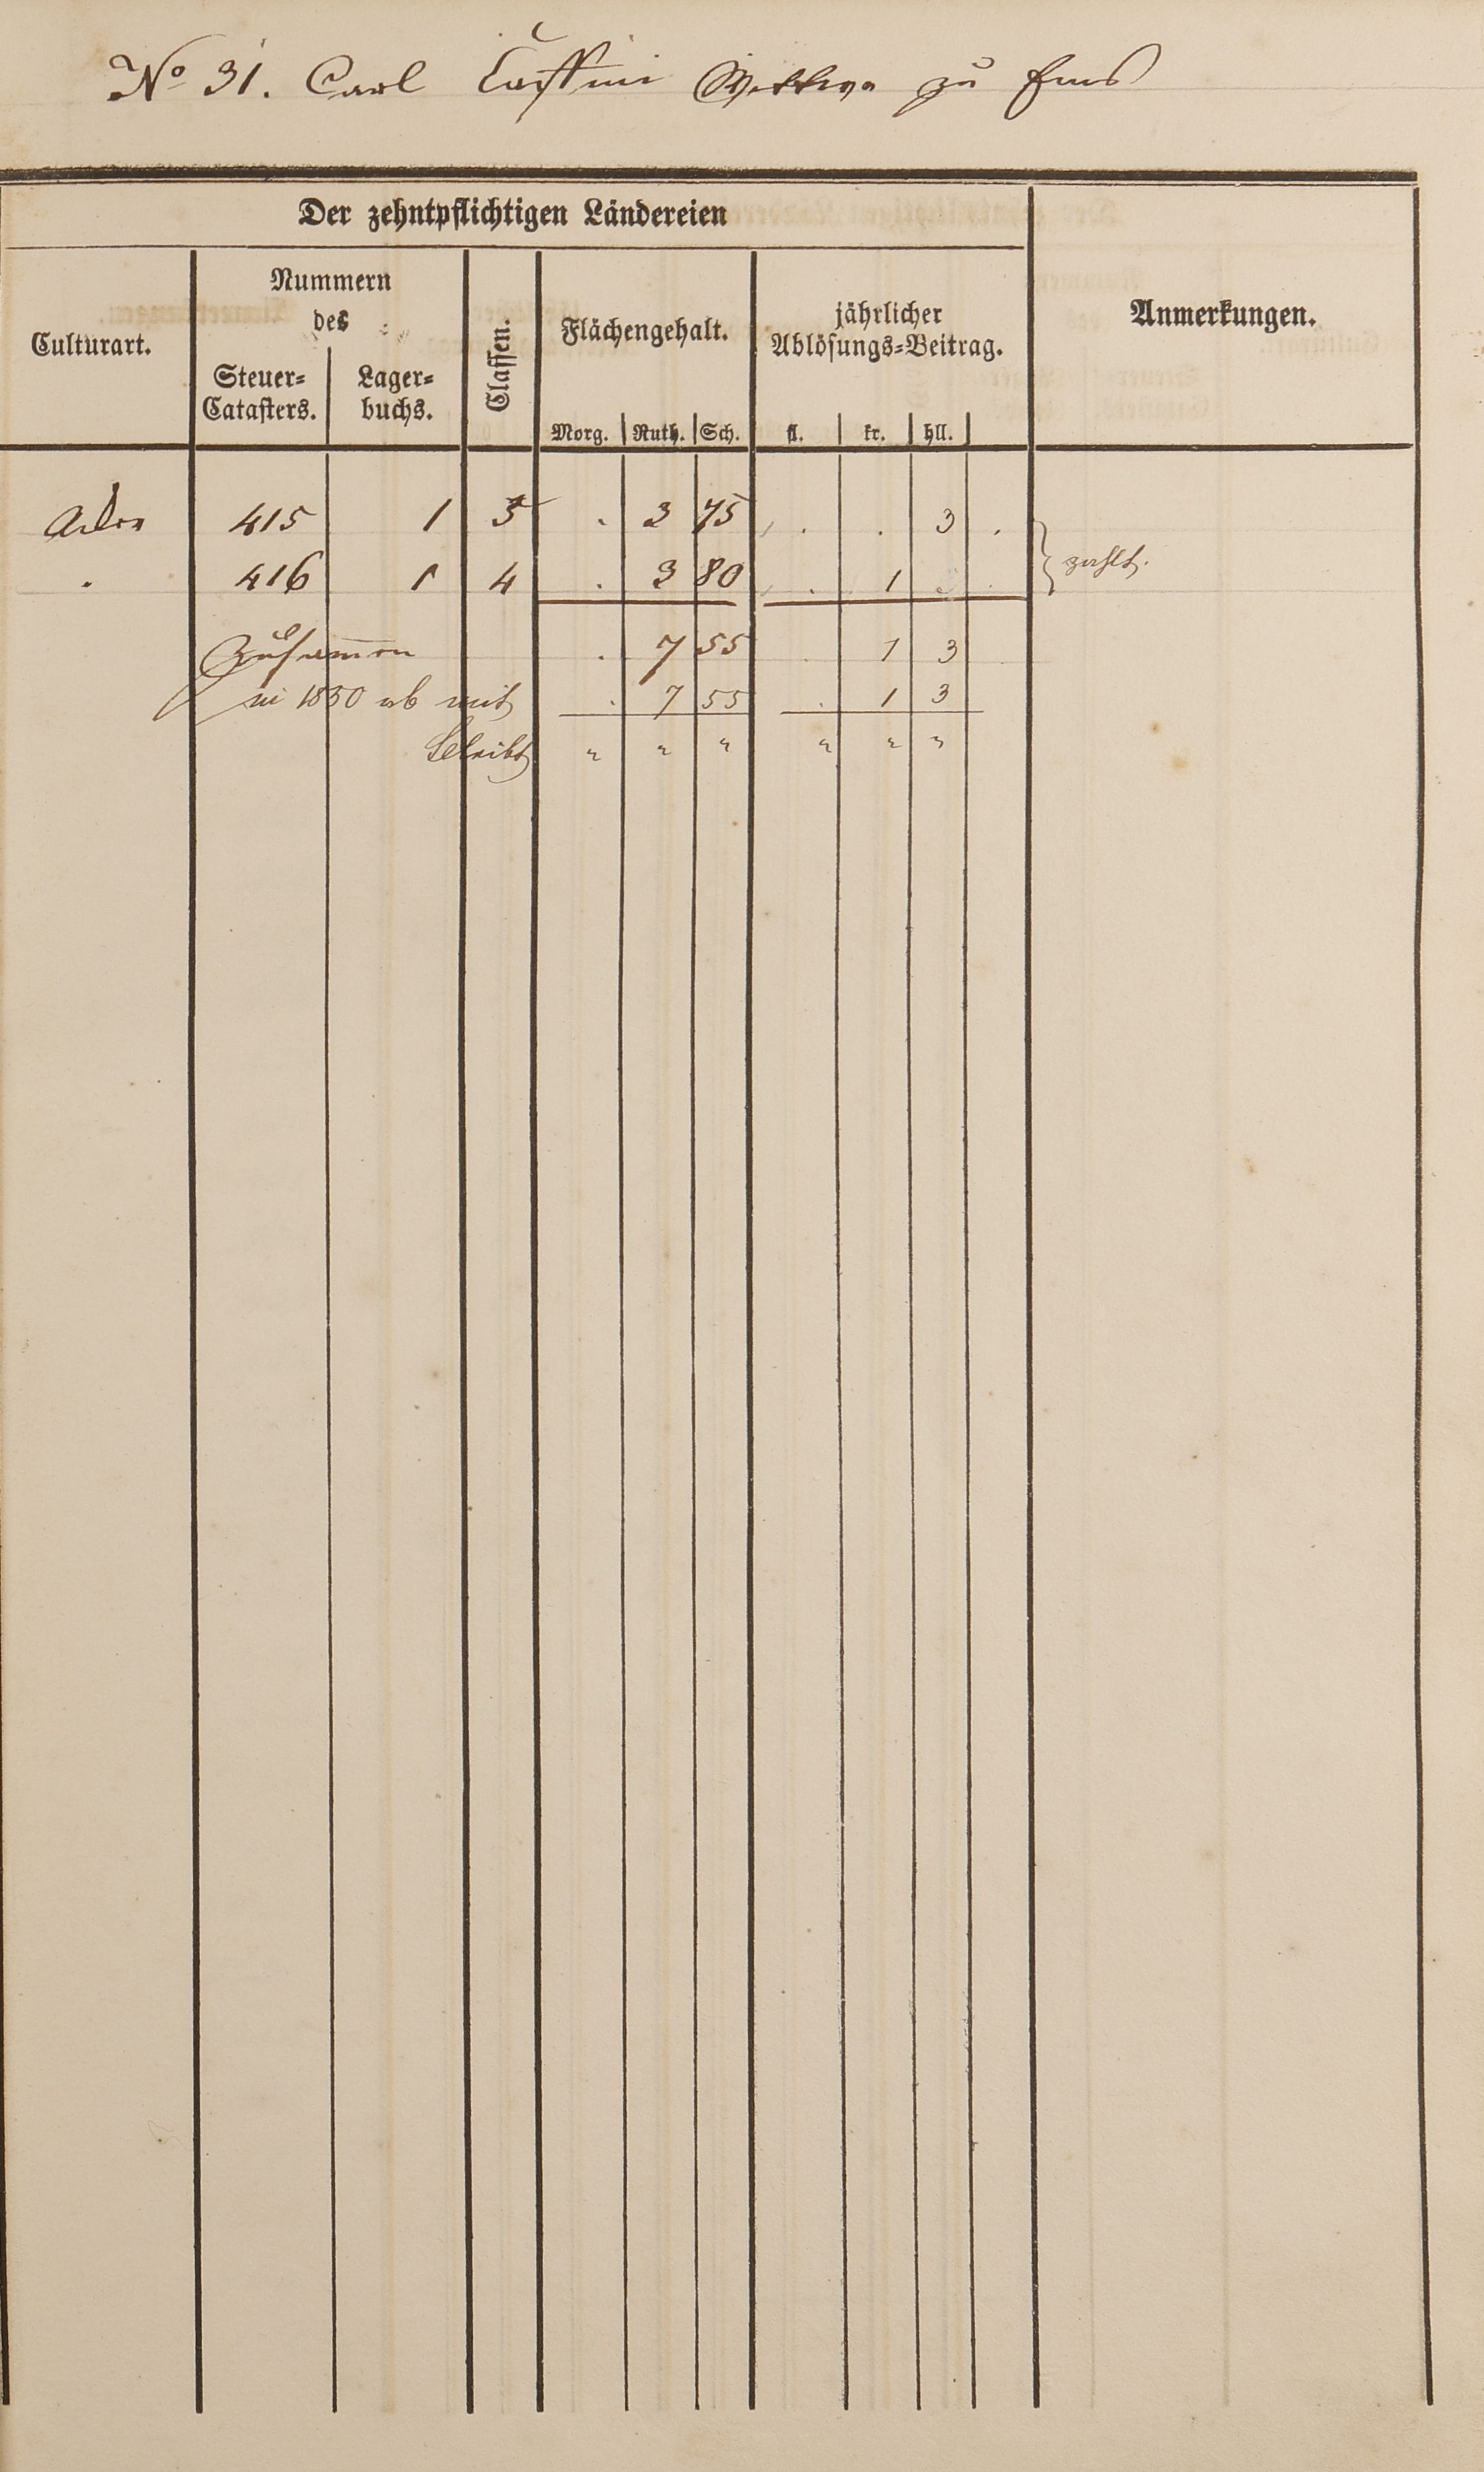 No 31. Carl Wittwe zu Ems
Der zehntpflichtigen Ländereien
Culturart.
Nummern
des
Steuer-
Catasters.
Lager-
buchs.
Classen.
Flächengehalt.
Morg. Ruth. Sch.
jährlicher
Ablösungs-Beitrag.
fl. kr. hll.
Anmerkungen.
Acker 415 1 3 . 3 75 . . 3 .
. 416 1 4 . 3 80 . 1 .
zahlt.
Zusammen . 7 55 . 1 3
in 1850 ab mit . 7 55 . 1 3
bleibt " " " " " "